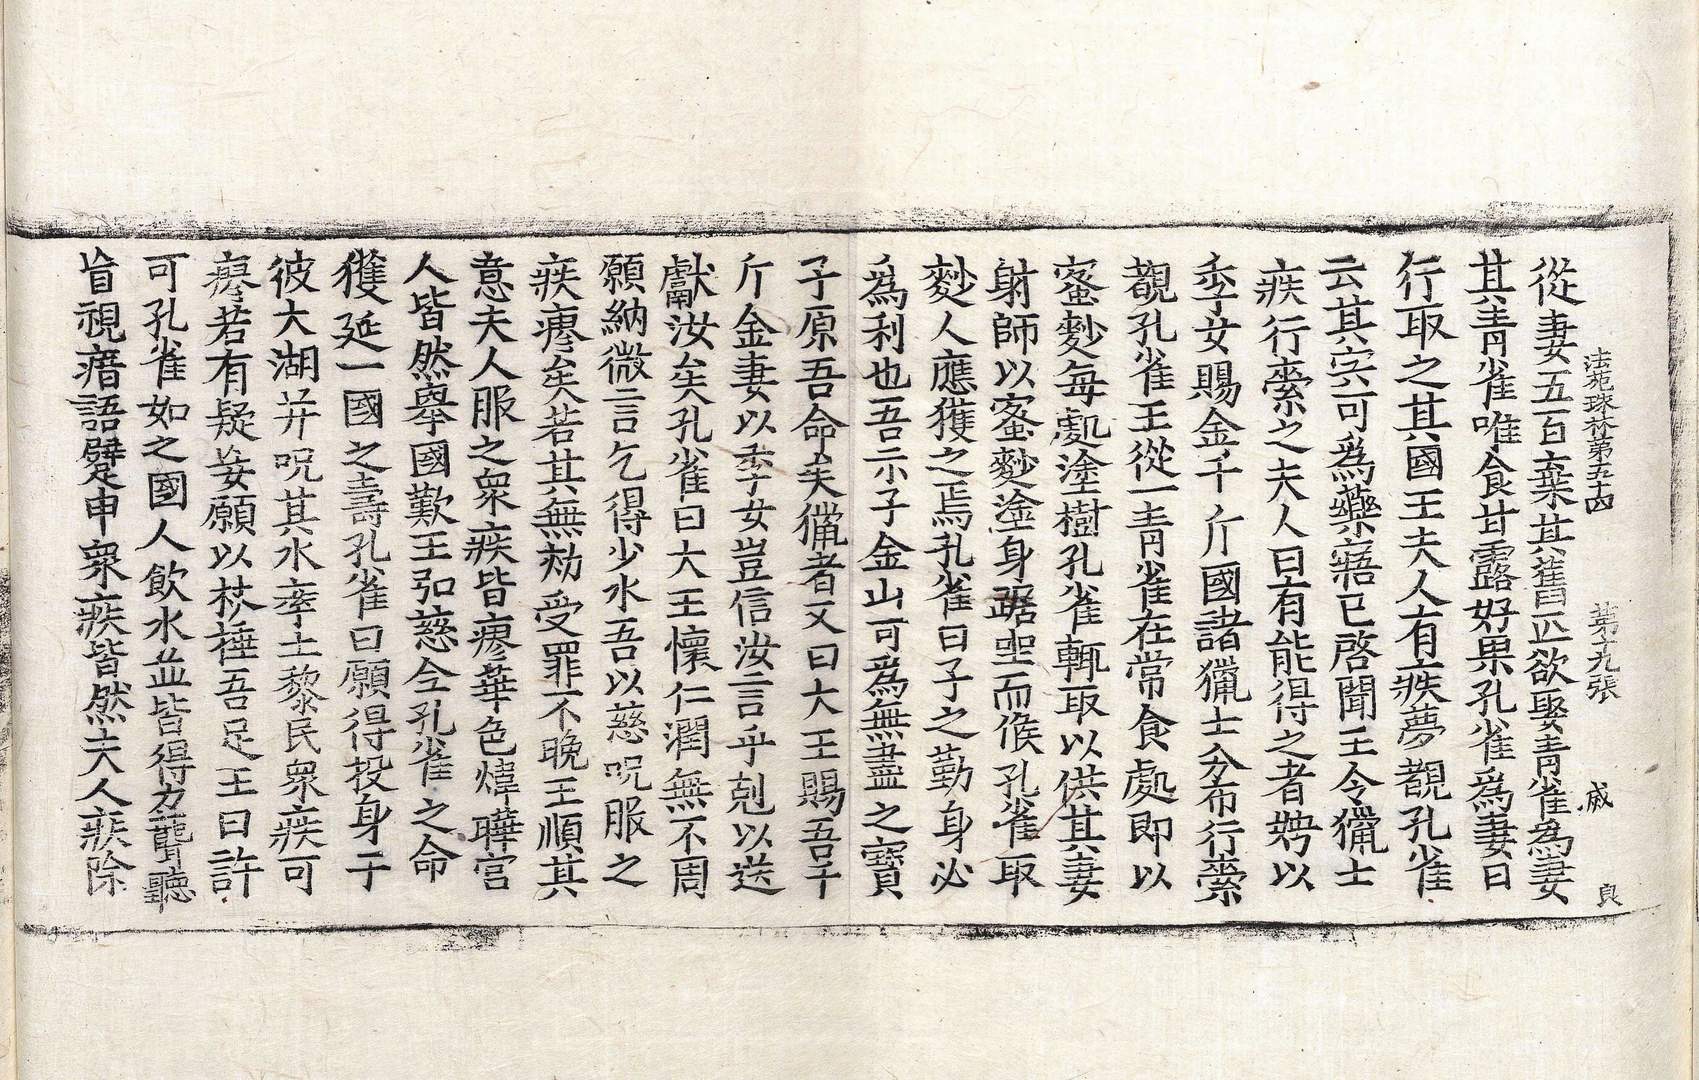 法苑珠林第五十四 第九張 戚 良
從妻五百棄其舊匹欲娶青雀為妻
其青雀唯食甘露好果孔雀為妻日
行取之其國王夫人有疾夢覩孔雀
云其宍可為藥寤已啓聞王令獵士
疾行索之夫人曰有能得之者娉以
季女賜金千斤國諸獵士分布行索
覩孔雀王從一青雀在常食處即以
蜜麨每處塗樹孔雀輒取以供其妻
射師以蜜麨塗身踞坐而候孔雀取
麨人應獲之焉孔雀曰子之勤身必
為利也吾示子金山可為無盡之寶
子原吾命矣獵者又曰大王賜吾千
斤金妻以季女豈信汝言乎剋以送
獻汝矣孔雀曰大王懷仁潤無不周
願納微言乞得少水吾以慈呪服之
疾瘳矣若其無効受罪不晚王順其
意夫人服之衆疾皆瘳華色煒曄宮
人皆然擧國歎王弘慈全孔雀之命
獲延一國之壽孔雀曰願得投身于
彼大湖并呪其水率土黎民衆疾可
瘳若有疑妄願以杖捶吾足王曰許
可孔雀如之國人飲水並皆得力聾聽
盲視瘖語躄申衆疾皆然夫人疾除